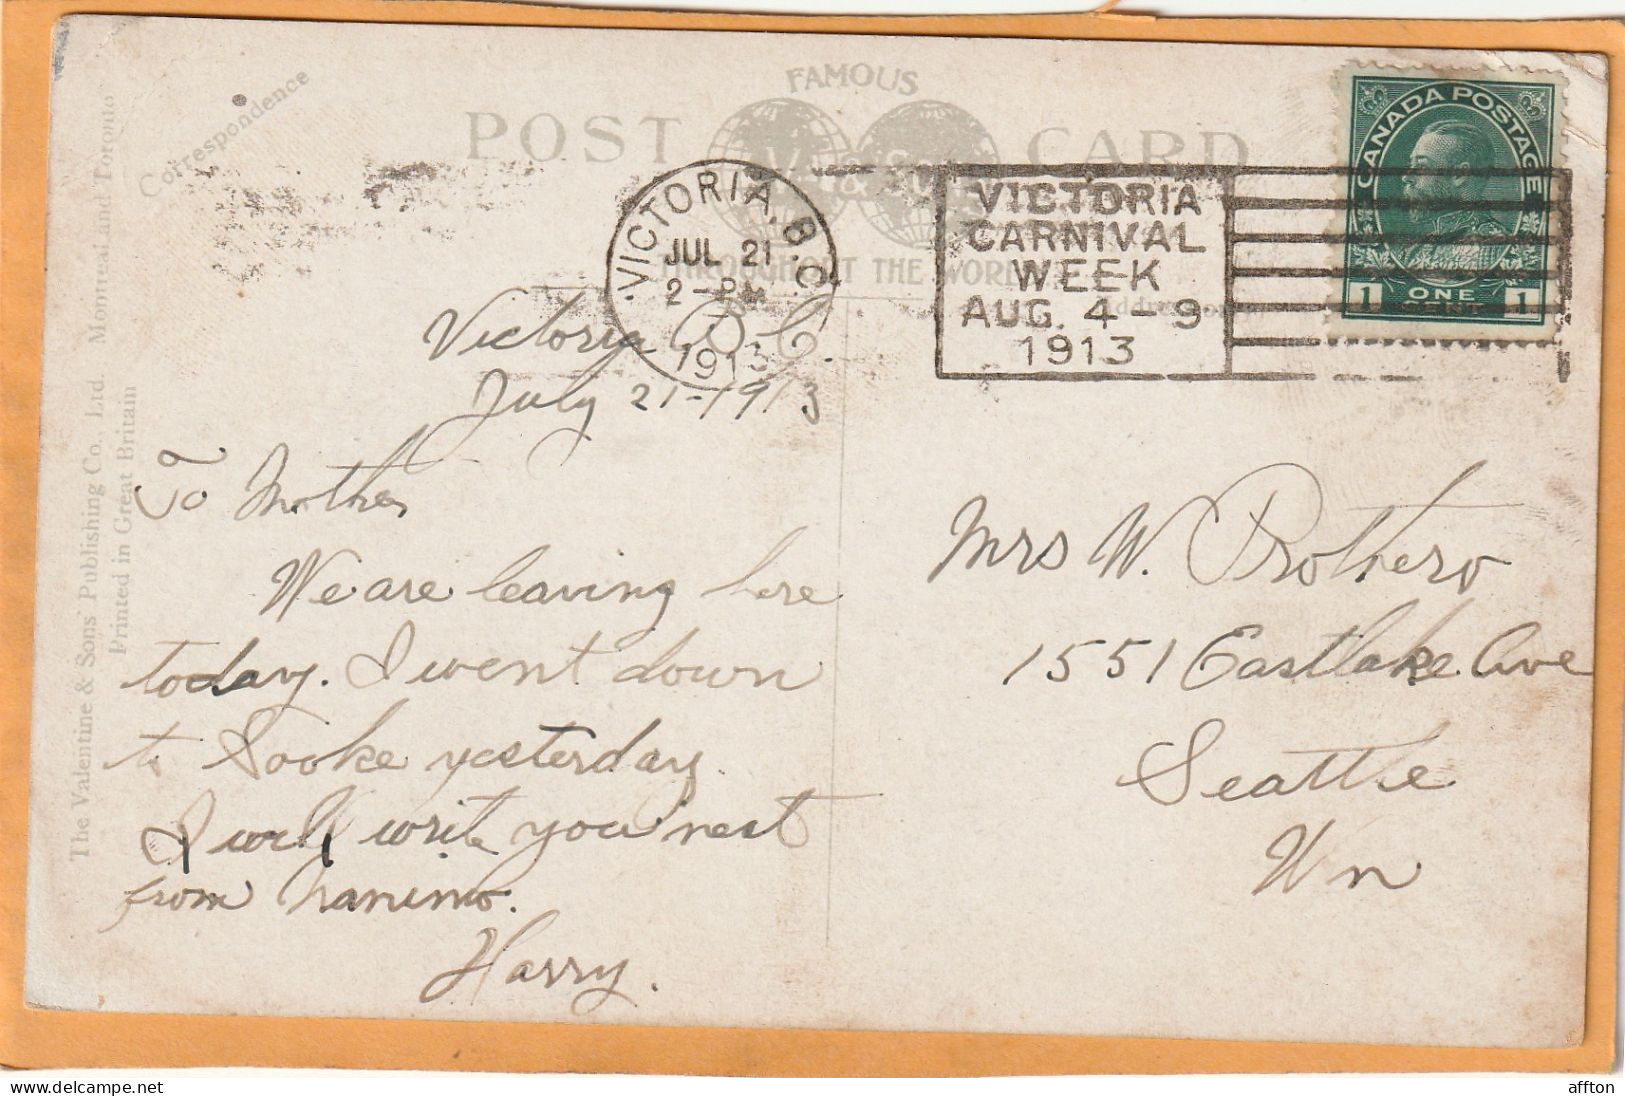 FAMOUS
POST CARD
V. & S.
THROUGHOUT THE WORLD
Correspondence
The Valentine & Sons' Publishing Co., Ltd. Montreal and Toronto
Printed in Great Britain
VICTORIA, B.C.
JUL 21
2-PM
1913
VICTORIA
CARNIVAL
WEEK
AUG. 4-9
1913
CANADA POSTAGE
1 ONE 1
Victoria B.C.
July 21-1913
To Mother
We are leaving here
today. I went down
to Sooke yesterday.
I will write you next
from Nanimo.
Harry.
Mrs W. Prothero
1551 Eastlake Ave
Seattle
Wn
affton